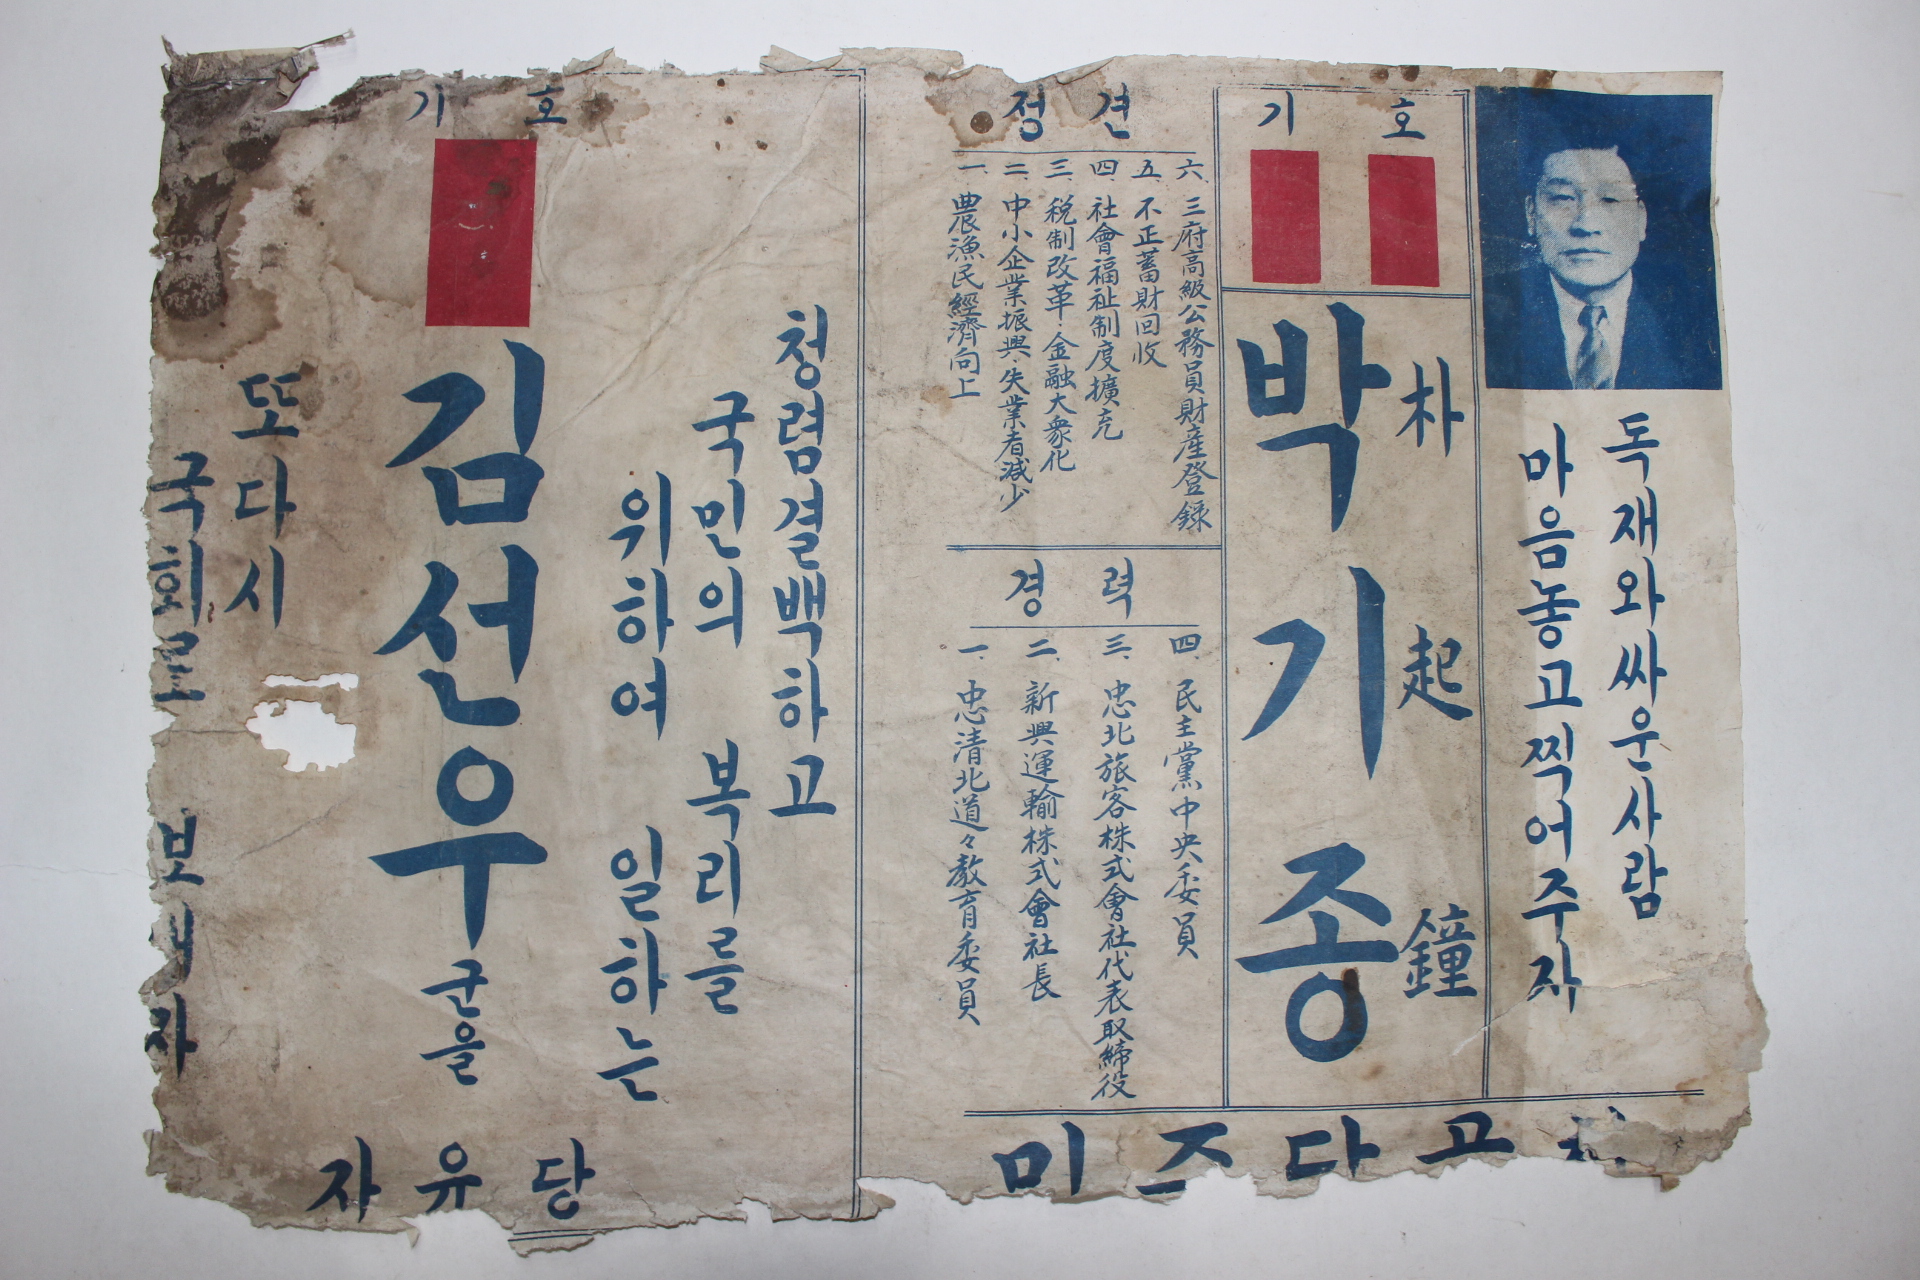 독재와 싸운 사람
마음놓고 찍어주자
기 호
朴起鐘
박기종
정 견
六. 三府高級公務員財産登錄
五. 不正蓄財回收
四. 社會福祉制度擴充
三. 稅制改革·金融大衆化
二. 中小企業振興·失業者減少
一. 農漁民經濟向上
경 력
四. 民主黨中央委員
三. 忠北旅客株式會社代表取締役
二. 新興運輸株式會社長
一. 忠清北道々教育委員
기 호
청렴결백하고
국민의 복리를
위하여 일하는
김선우 군을
또다시
국회로 보내자
자유당